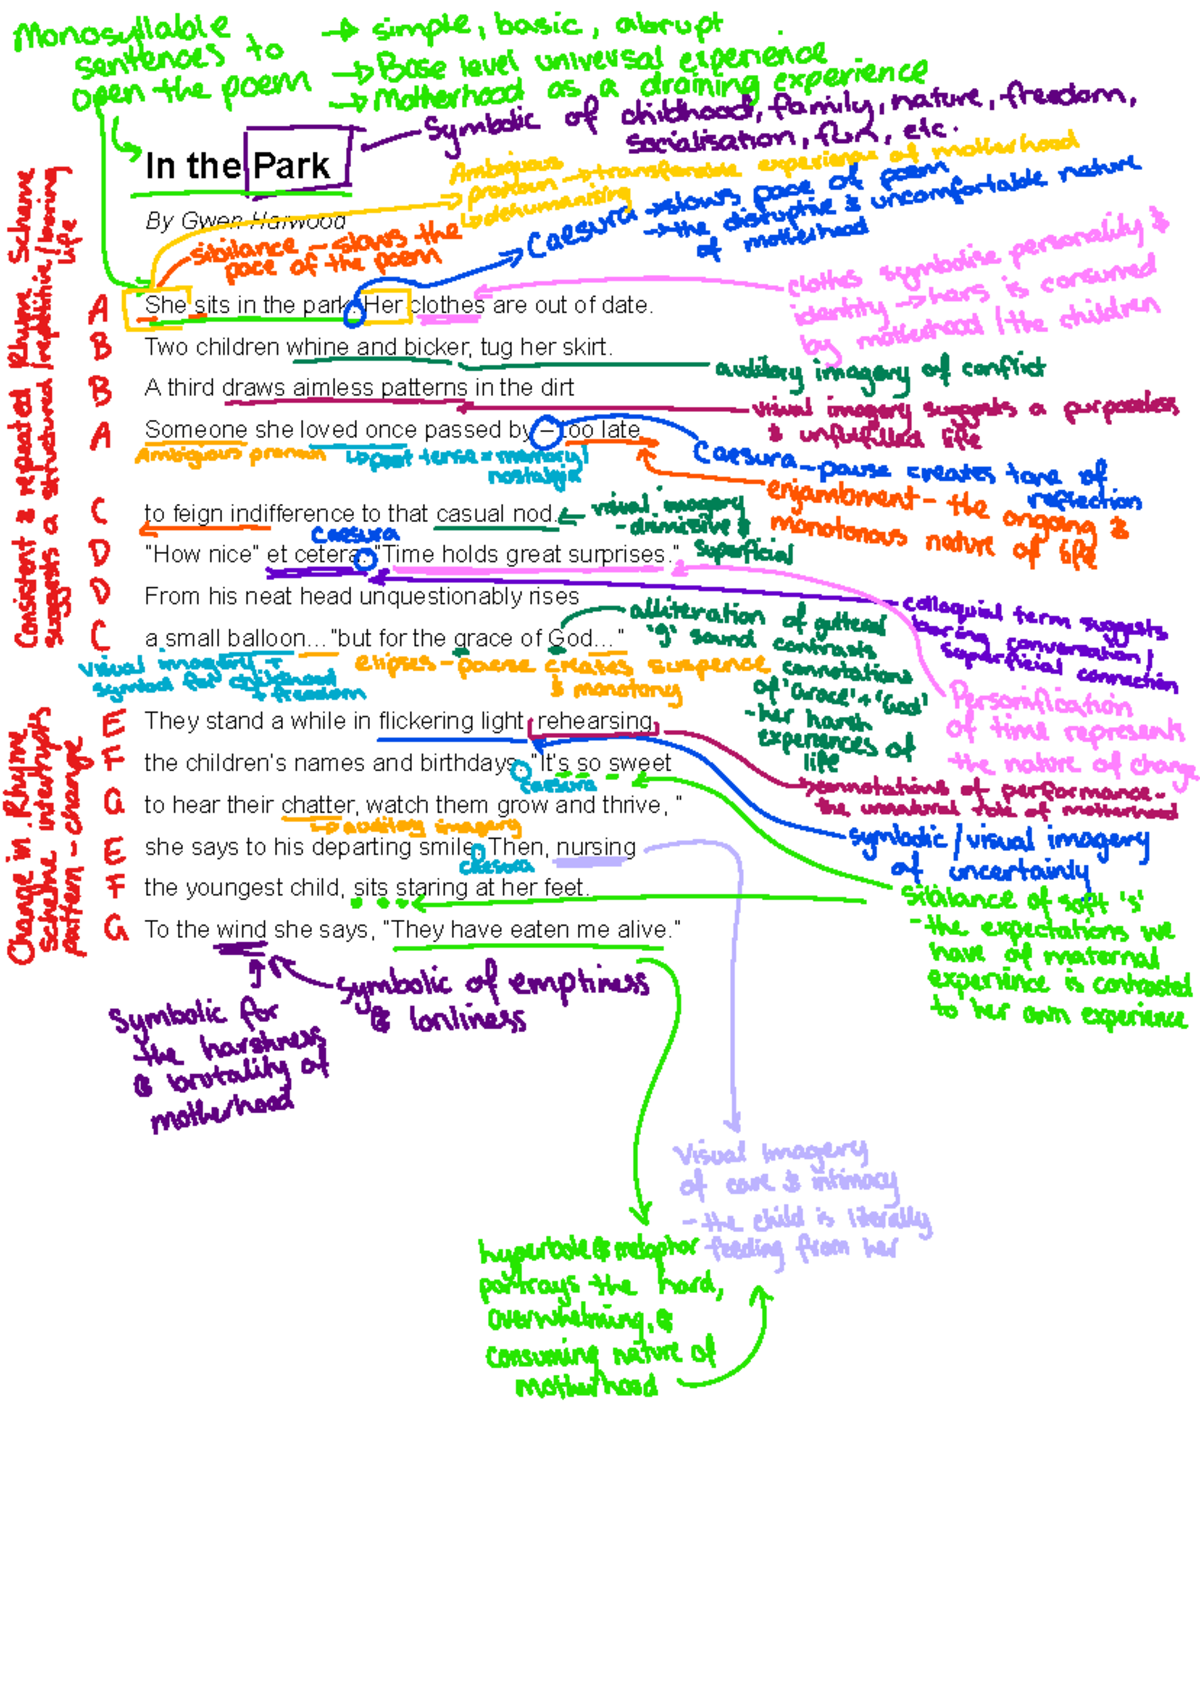 Monosyllable
sentences to
open the poem
→ simple, basic, abrupt
→ Base level universal experience
→ Motherhood as a draining experience
Symbolic of childhood, family, nature, freedom,
socialisation, fun, etc.
In the Park
By Gwen Harwood
Ambiguous
pronoun → transferable experience of motherhood
↳ dehumanising
sibilance – slows the
pace of the poem
Caesura → slows pace of poem
→ the disruptive & uncomfortable nature
of motherhood
clothes symbolise personality &
identity → hers is consumed
by motherhood / the children
Consistent & repeated Rhyme Scheme
suggests a structured / repetitive / boring
life
A She sits in the park. Her clothes are out of date.
B Two children whine and bicker, tug her skirt.
auditory imagery of conflict
B A third draws aimless patterns in the dirt
visual imagery suggests a purposeless
& unfulfilled life
A Someone she loved once passed by – too late
Ambiguous pronoun
↳ past tense = memory/
nostalgic
Caesura – pause creates tone of
reflection
enjambment – the ongoing &
monotonous nature of life
C to feign indifference to that casual nod.
visual imagery
- dismissive &
superficial
Caesura
D "How nice" et cetera. "Time holds great surprises."
D From his neat head unquestionably rises
colloquial term suggests
boring conversation/
superficial connection
C a small balloon..."but for the grace of God..."
visual imagery +
symbol for childhood
+ freedom
elipses – pause creates suspence
& monotony
alliteration of guttural
'g' sound contrasts
connotations
of 'Grace' + 'God'
- her harsh
experiences of
life
Personification
of time represents
the nature of change
Change in Rhyme
scheme interrupts
pattern – change
E They stand a while in flickering light, rehearsing
F the children's names and birthdays. "It's so sweet
caesura
→ connotations of performance –
the unnatural role of motherhood
G to hear their chatter, watch them grow and thrive, "
↳ auditory imagery
symbolic / visual imagery
of uncertainty
E she says to his departing smile. Then, nursing
caesura
F the youngest child, sits staring at her feet.
sibilance of soft 's'
- the expectations we
have of maternal
experience is contrasted
to her own experience
G To the wind she says, "They have eaten me alive."
symbolic of emptiness
& lonliness
Symbolic for
the harshness
& brutality of
motherhood
Visual Imagery
of care & intimacy
- the child is literally
feeding from her
hyperbole & metaphor
portrays the hard,
overwhelming, &
consuming nature of
motherhood